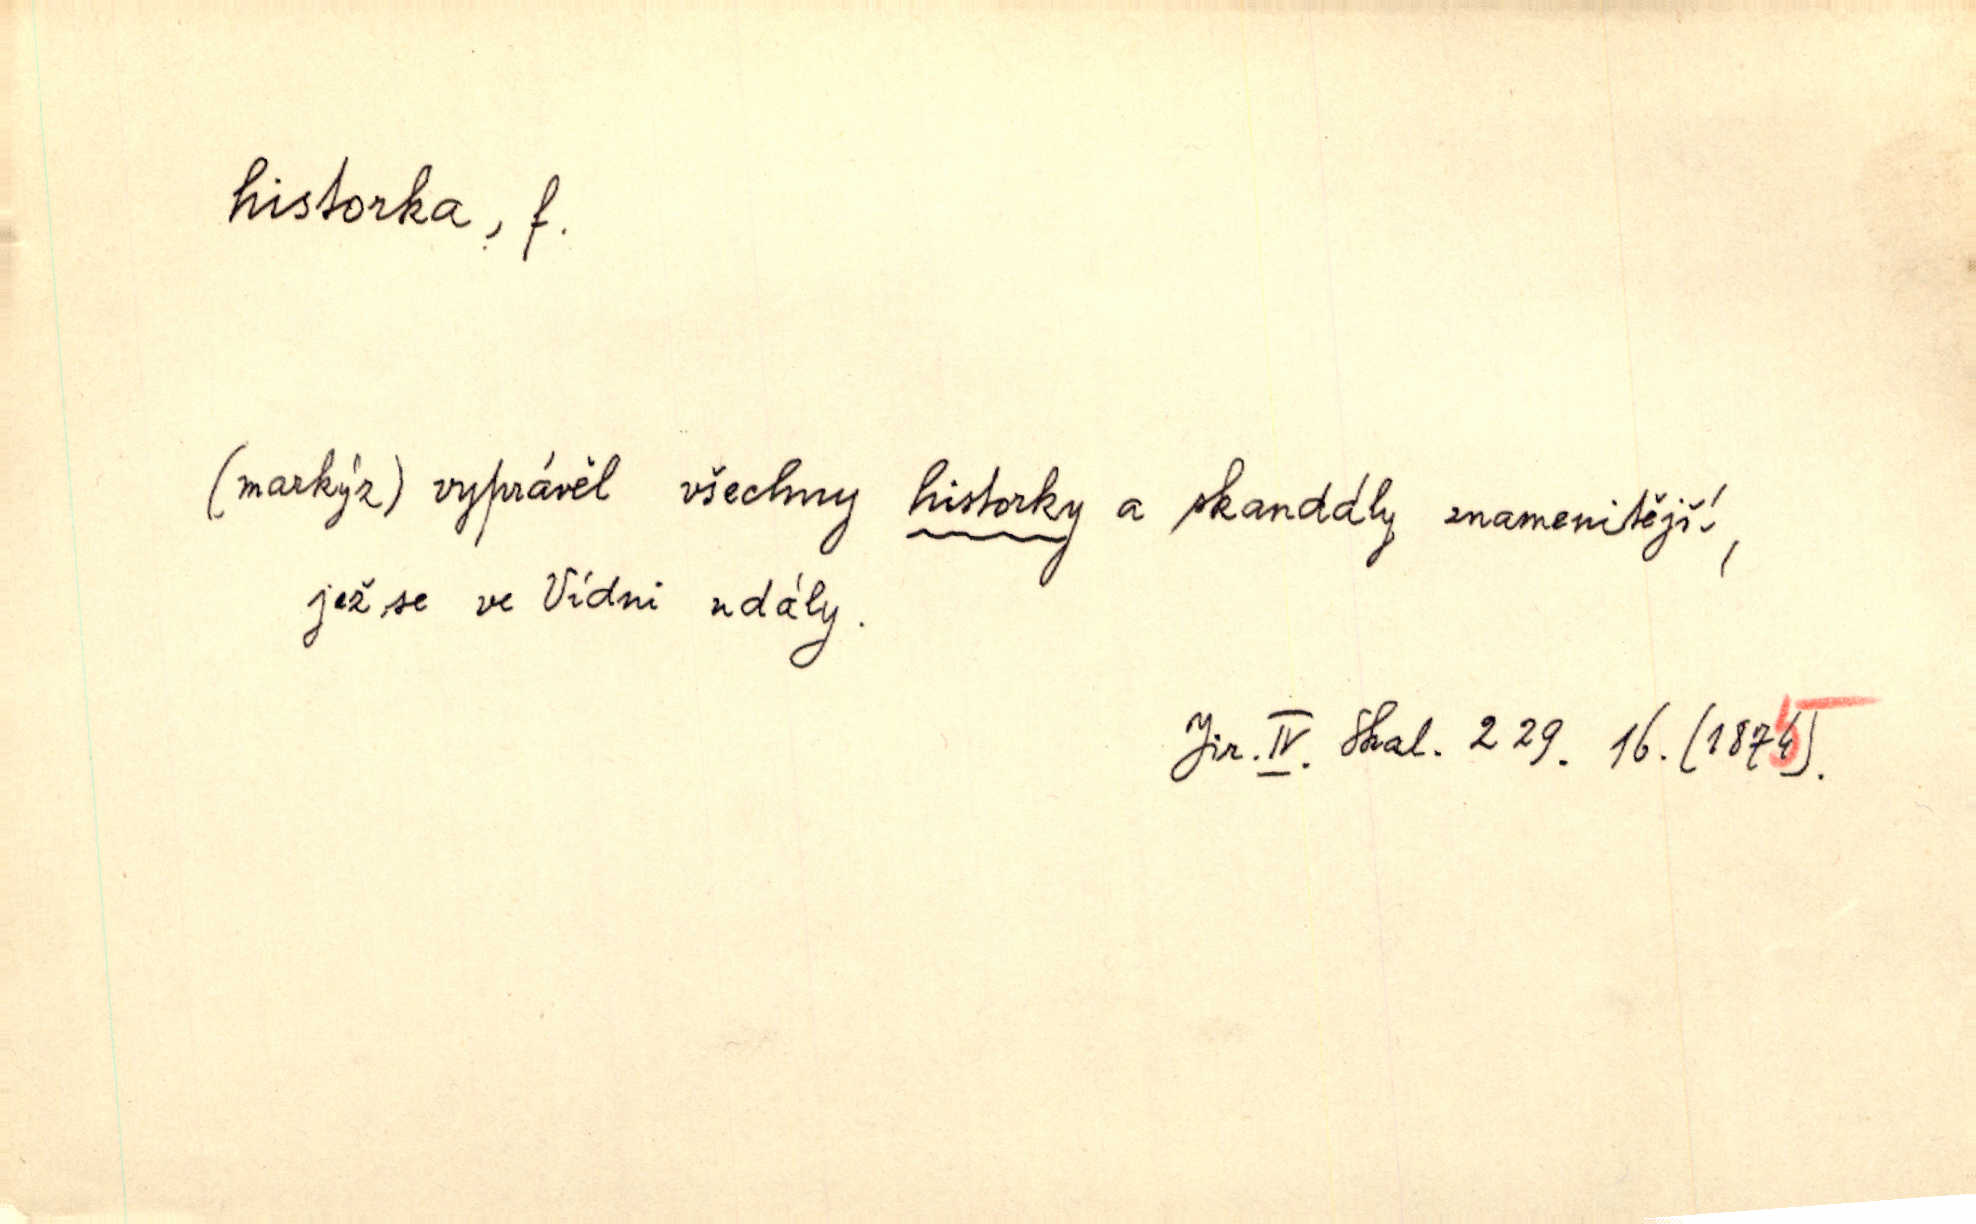 historka, f.
(markýz) vyprávěl všechny historky a skandály znamenitější,
jež se ve Vídni udály.
Jir. IV. Skal. 229. 16. (1875).